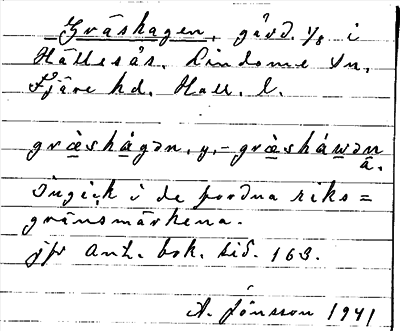 Gräshagen, gård. 1/8 i
Hällesås. Lindome sn,
Fjäre hd. Hall. l.
græshágən, y,- græsháwən
â.
Ingick i de forna riks=
gränsmärkena.
jfr ant. bok. sid. 163.
A. Jönsson 1941